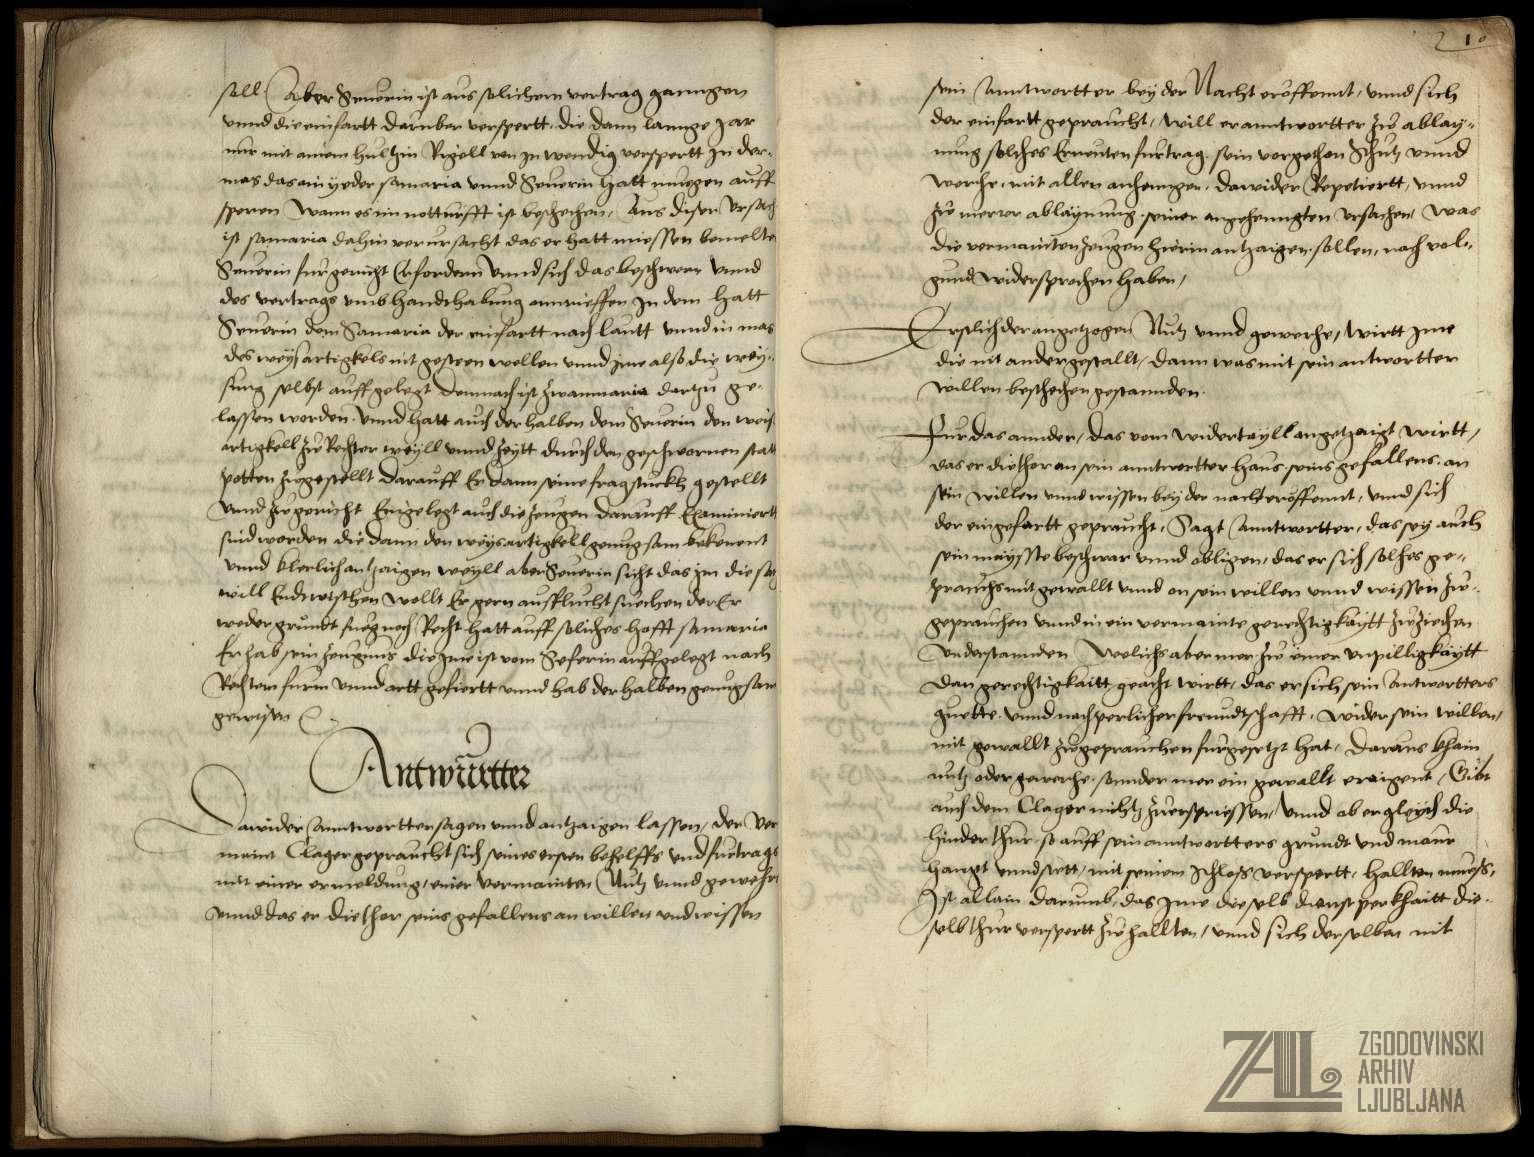 soll Aber Seuerin ist aus solichem vertrag ganngen
vnnd die einfartt darüber verspertt. die dann lannge Jar
nur mit ainem hultzin Rigell von Inwendig verspertt In der-
mas das ain yeder Samaria vnnd Seuerin hatt muegen auff
speren Wann es im notturfft ist beschechen, Aus diser Vrsach
ist Samaria dahin verursacht das er hatt miessen bemelten
Seuerin für gericht Erfordern Vnnd sich das beschwern Vnnd
des vertrags vmb Handthabung anrueffen In dem hatt
Seuerin dem Samaria der einfartt nach lautt vnnd in mas
des weysartigkels nit gesteen wellen vnnd Ime also die wey-
sung selbst auffgelegt demnach ist Zwanmaria dartzu ge-
lassen worden. Vnnd hatt auch derhalben dem Seuerin den weis
artigkell Zu Rechter weyll vnnd Zeytt durch den geschwornen statt
potten Zugestellt darauff Er dann seine fragstuckh gestellt
vnnd Zu gericht Eingelegt auch die Zeugen darauff Examiniertt
sind worden die dann den weysartigkell genugsam bekennt
vnnd klerlich antzaigen weyll aber Seuerin sicht das Im die sach
will Endtwischen Wollt Er gern ausflucht suechen der Er
weder grundt fueg noch Recht hatt auff soliches hofft Samaria
Er hab sein Zeugnus die Ime ist vom Seferin auffgelegt nach
Rechtem furm vnnd artt gefiertt vnnd hab derhalben genugsam
gewisen
Antwurtter
Dawider Anntwortter sagen vnnd antzaigen lassen, der Ver
maint Clager gepraucht sich seines ersten behelffs vnd furtrags
mit einer ermeldung, einer vermainten Nutz vnnd gewehr
vnnd das er die thor seins gefallens an willen vnd wissen
10
sein Anntwortter bey der Nacht eröffennt, vnnd sich
der einfartt gepraucht, Will er anntwortter Zu ablay-
nung solches Erneuten furtrag. sein vorgethon Schutz vnnd
werche, mit allen anhenngen, dawider Repetiertt, vnnd
Zu merer ablaynung. seiner angehenngten vrsachen, Was
die vermainten Zeugen hierin antzaigen sollen, nach vol-
gund widersprochen haben,
Erstlich der angetzogen Nutz vnnd gewerche, wirtt Ime
die nit andergestallt, dann was mit sein antwortter
willen beschechen gestannden.
Fur das annder, das vom widertayll angetzaigt wirtt,
das er die thor an sein anntwortter haus, seins gefallens. an
sein willen vnnd wissen bey der nacht eröffennt, vnnd sich
der eingefartt gepraucht, Sagt Anntwortter, das sey auch
sein maysste beschwar vnnd obligen, das er sich solches ge-
prauchs mit gewallt vnnd on sein willen vnnd wissen Zu.
geprauchen vnnd in ein vermainte gerechtigkaytt Zuziechen
vnderstannden Welichs aber mer Zu einer vnpilligkaytt
dan gerechtigkaitt geacht wirtt, das er sich sein Antwortters
guette. vnnd nachperlicher freundtschafft, wider sein willen,
mit gewallt Zugeprauchen furgesetzt hat, daraus khain
nutz oder gewerche. sonnder mer ein gewallt eraigent, Gibt
auch dem Clager nichts Zuerspriessen, Vnnd ob er gleych die
hinder thur so auff sein anntwortters grundt vnd maur
hangt vnnd stett, mit seinem schloss verspertt, hallten muess,
Ist allain darumb, das Ime dieselb dienstperkhaitt die-
selb thur verspertt Zu hallten, vnnd sich derselben mit
ZGODOVINSKI
ARHIV
LJUBLJANA